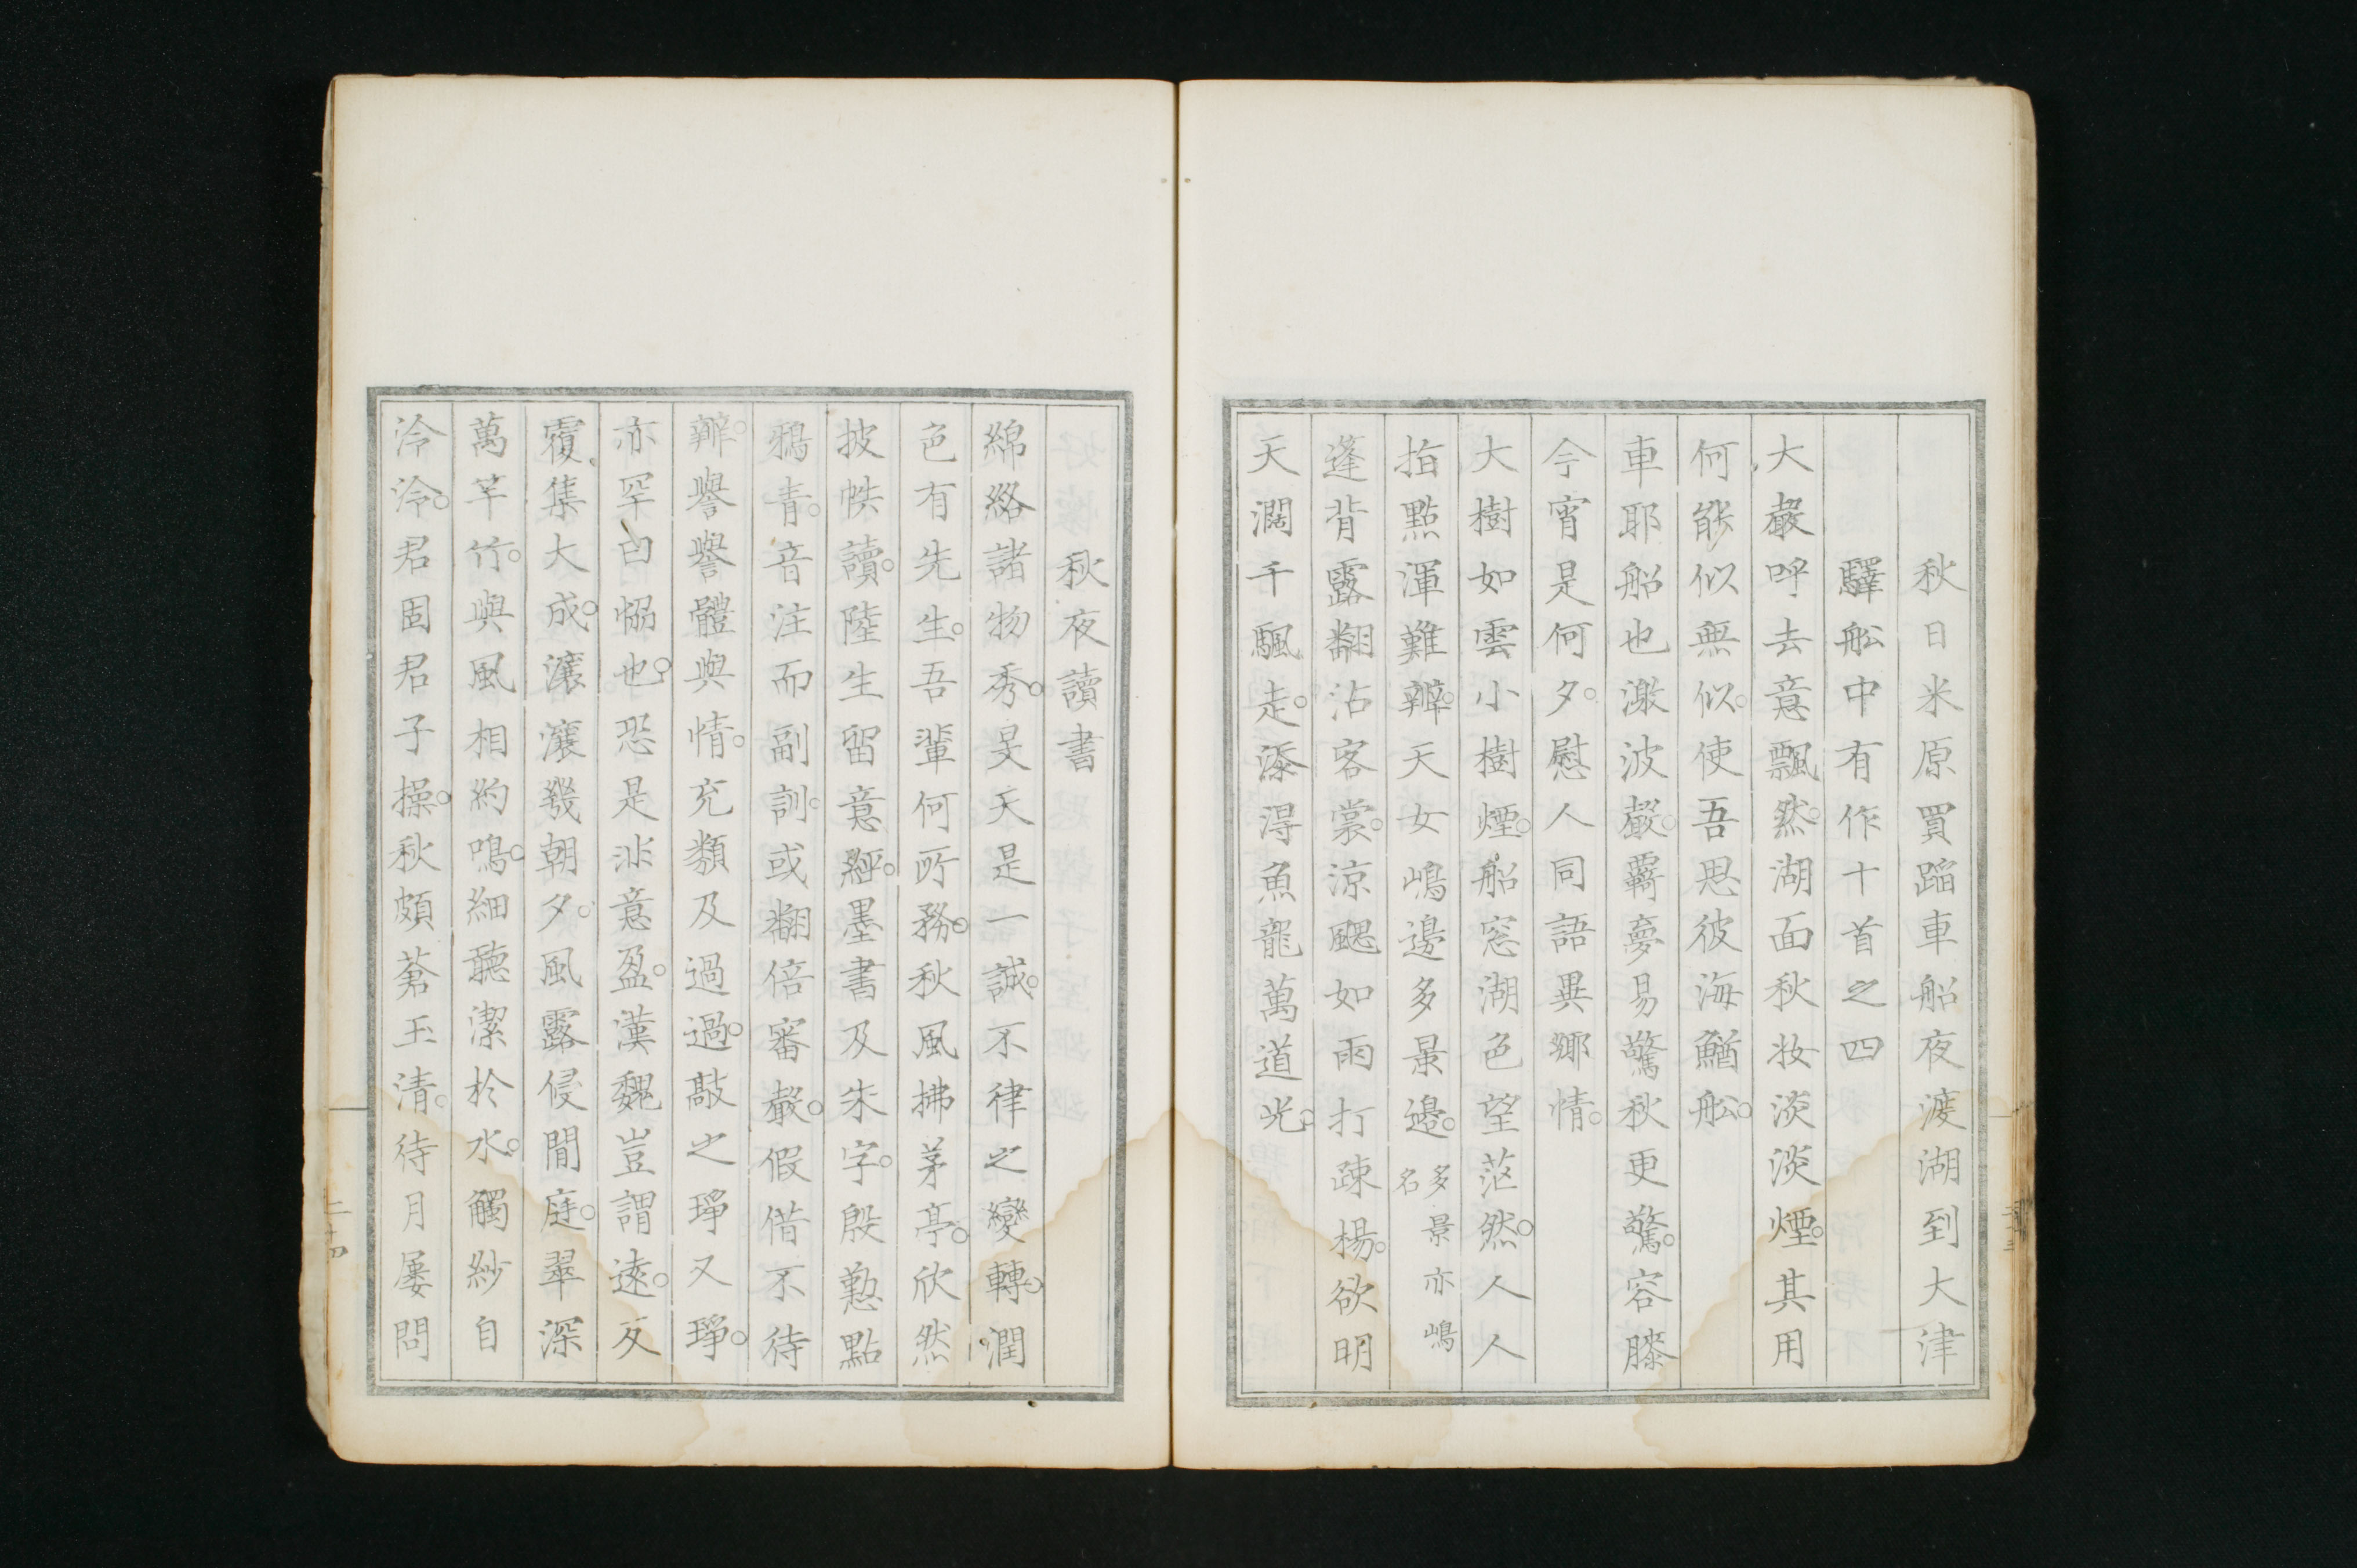 秋日米原買蹈車船夜渡湖到大津
驛舩中有作十首之四
大嚴呼去意飄然。湖面秋妝淡淡煙。其用
何能似無似。使吾思彼海鰌舩。
車耶船也激波嚴。覊夢易驚秋更驚。容膝
今宵是何夕。慰人同語異鄉情。
大樹如雲小樹煙。船窓湖色望茫然。人人
指點渾難辨。天女嶋邊多景邊。多景亦嶋名
蓬背露翻沾客裳。涼颸如雨打疎楊。欲明
天濶千颿走。添得魚龍萬道光。
秋夜讀書
綿絡諸物秀。旻天是一誠。不律之變轉。潤
色有先生。吾輩何所務。秋風拂茅亭。欣然
披帙讀。陸生留意經。墨書及朱字。殷懃點
鴉青。音注而副訓。或翻倍審聲。假借不待
辨。譽譽體與情。充類及過過。敲之琤又琤。
亦罕曰惱也。恐是非意盈。漢魏豈謂遠。反
覆集大成。瀼瀼幾朝夕。風露侵閒庭。翠深
萬竿竹。與風相約鳴。細聽潔於水。觸紗自
泠泠。君固君子操。秋頗蒼玉清。待月屡問
二十四